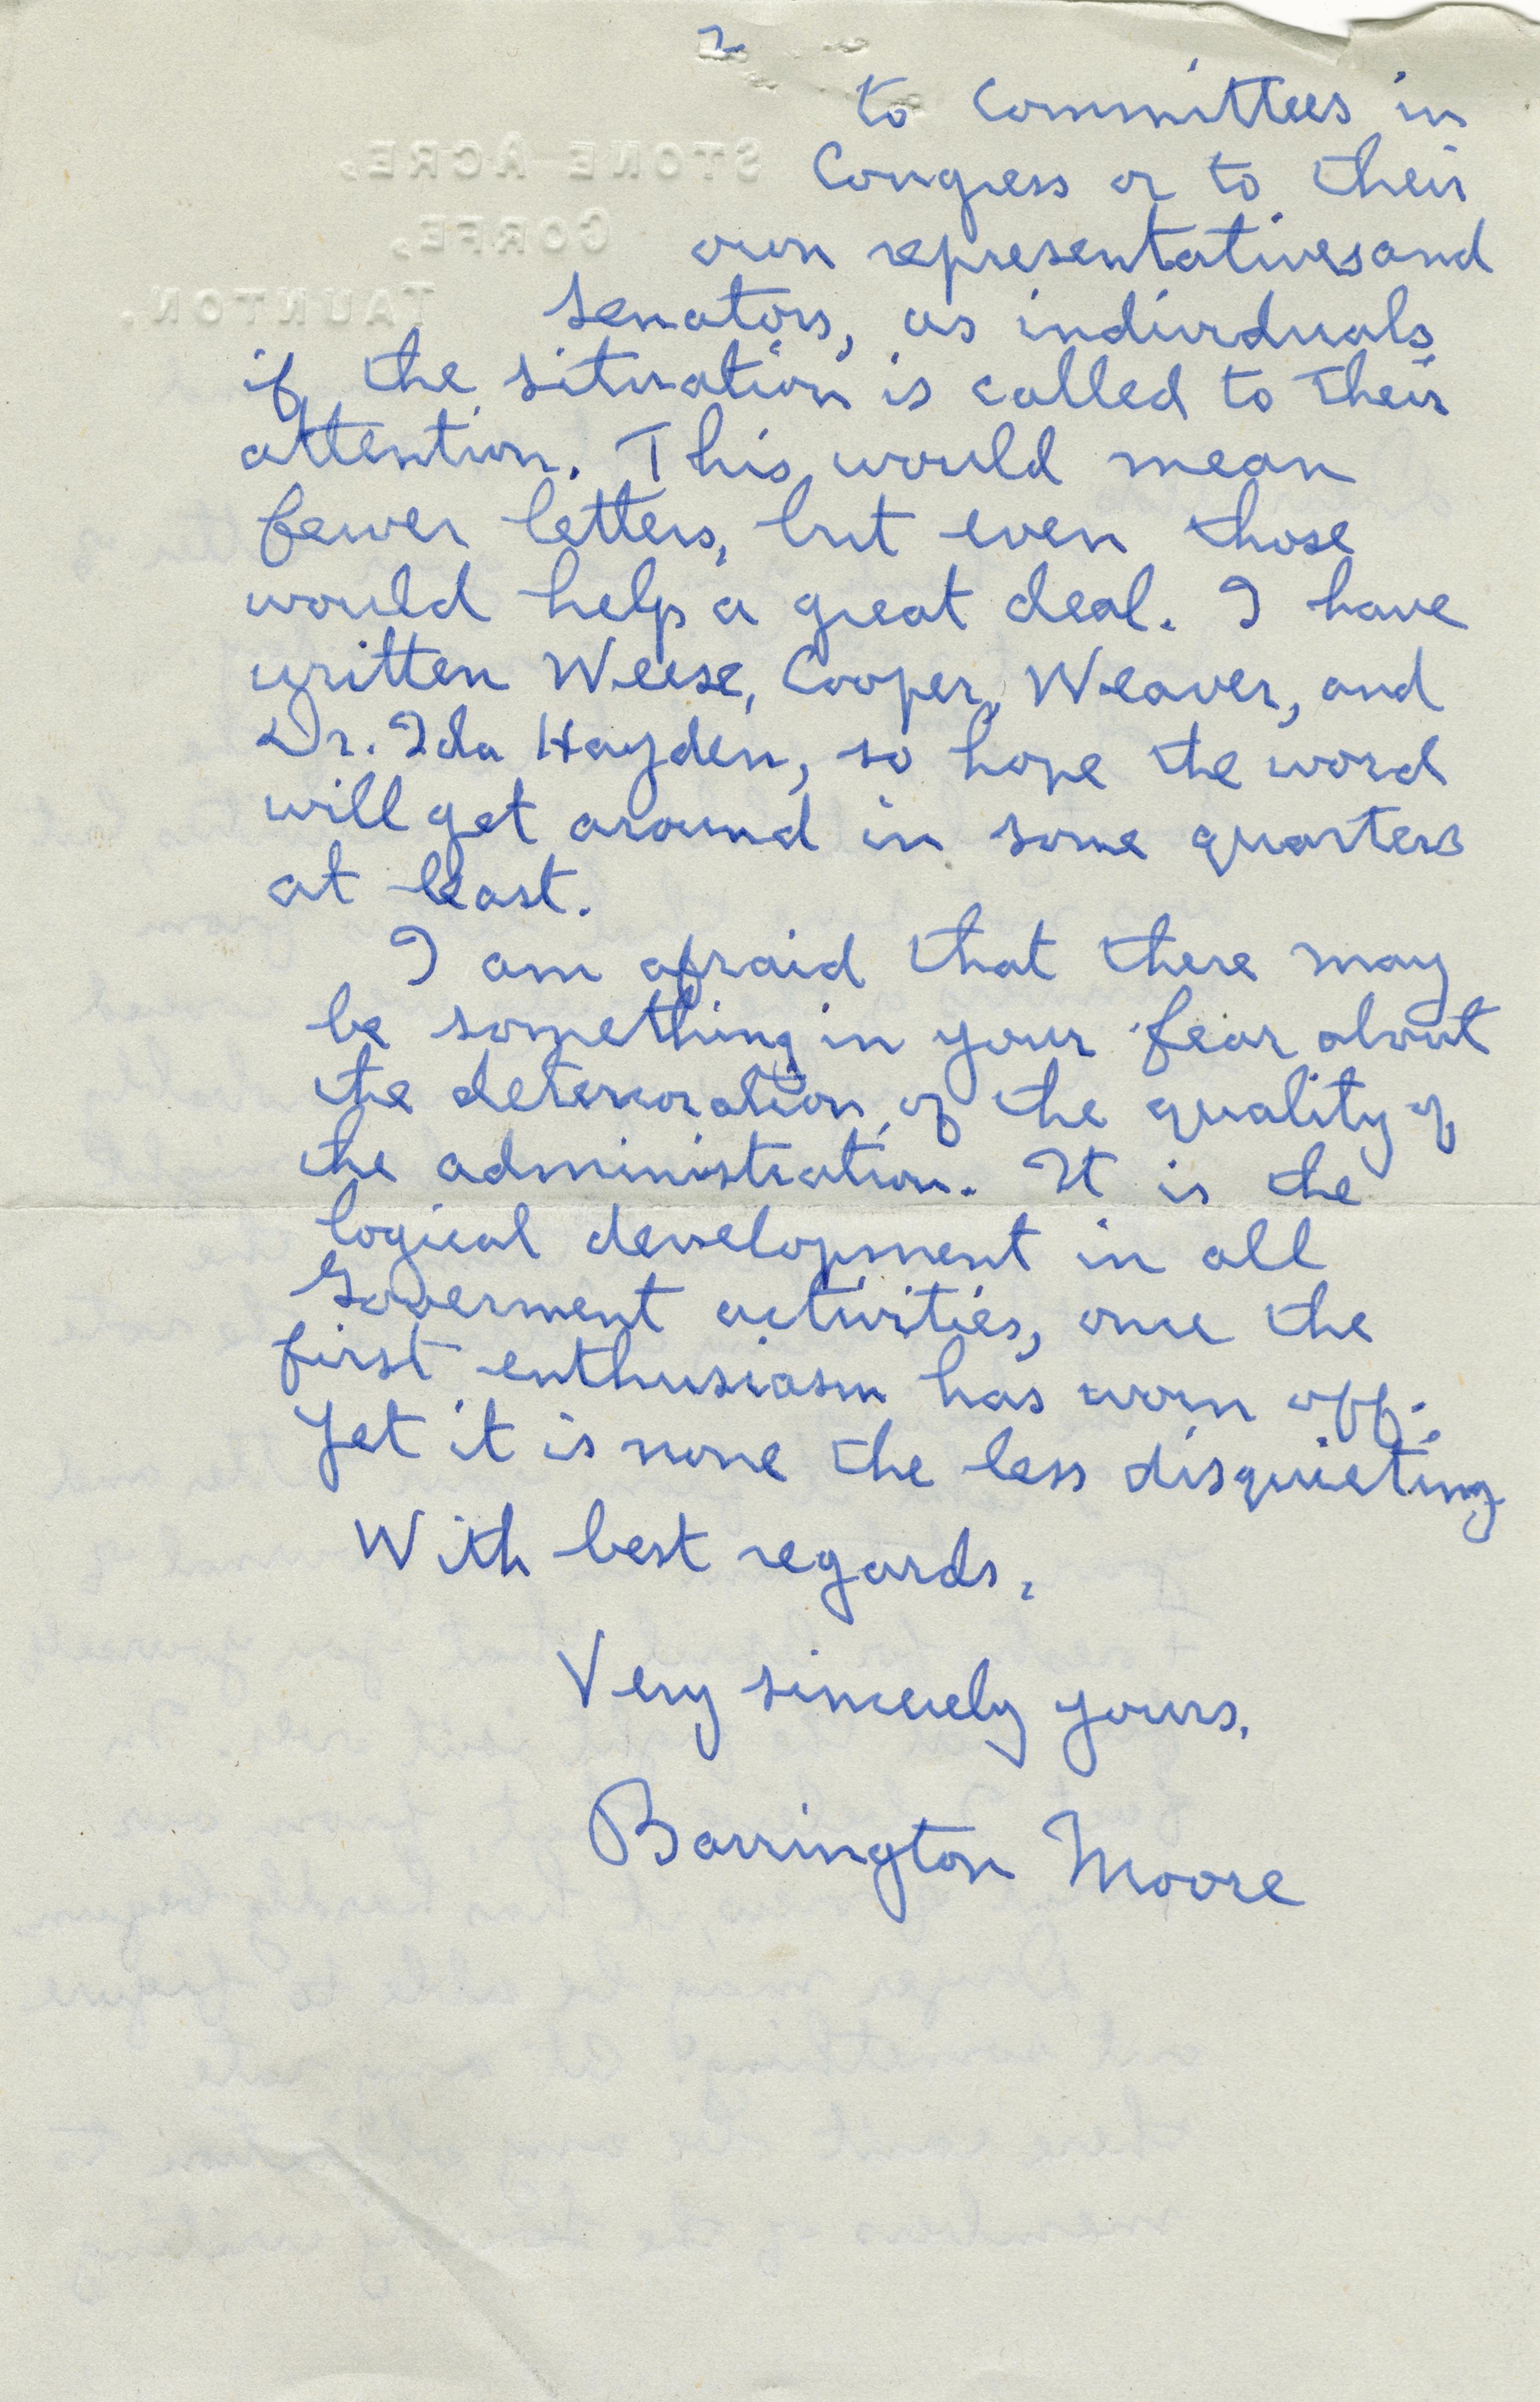 2
to committees in
STONE ACRE,
Congress or to their
CORFE,
own representatives and
TAUNTON.
Senators, as individuals,
if the situation is called to their
attention. This would mean
fewer letters, but even those
would help a great deal. I have
written Weese, Cooper, Weaver, and
Dr. Ida Hayden, so hope the word
will get around in some quarters
at least.
I am afraid that there may
be something in your fear about
the deterioration of the quality of
the administration. It is the
logical development in all
Goverment activities, once the
first enthusiasm has worn off.
Yet it is none the less disquieting
With best regards,
Very sincerely yours,
Barrington Moore